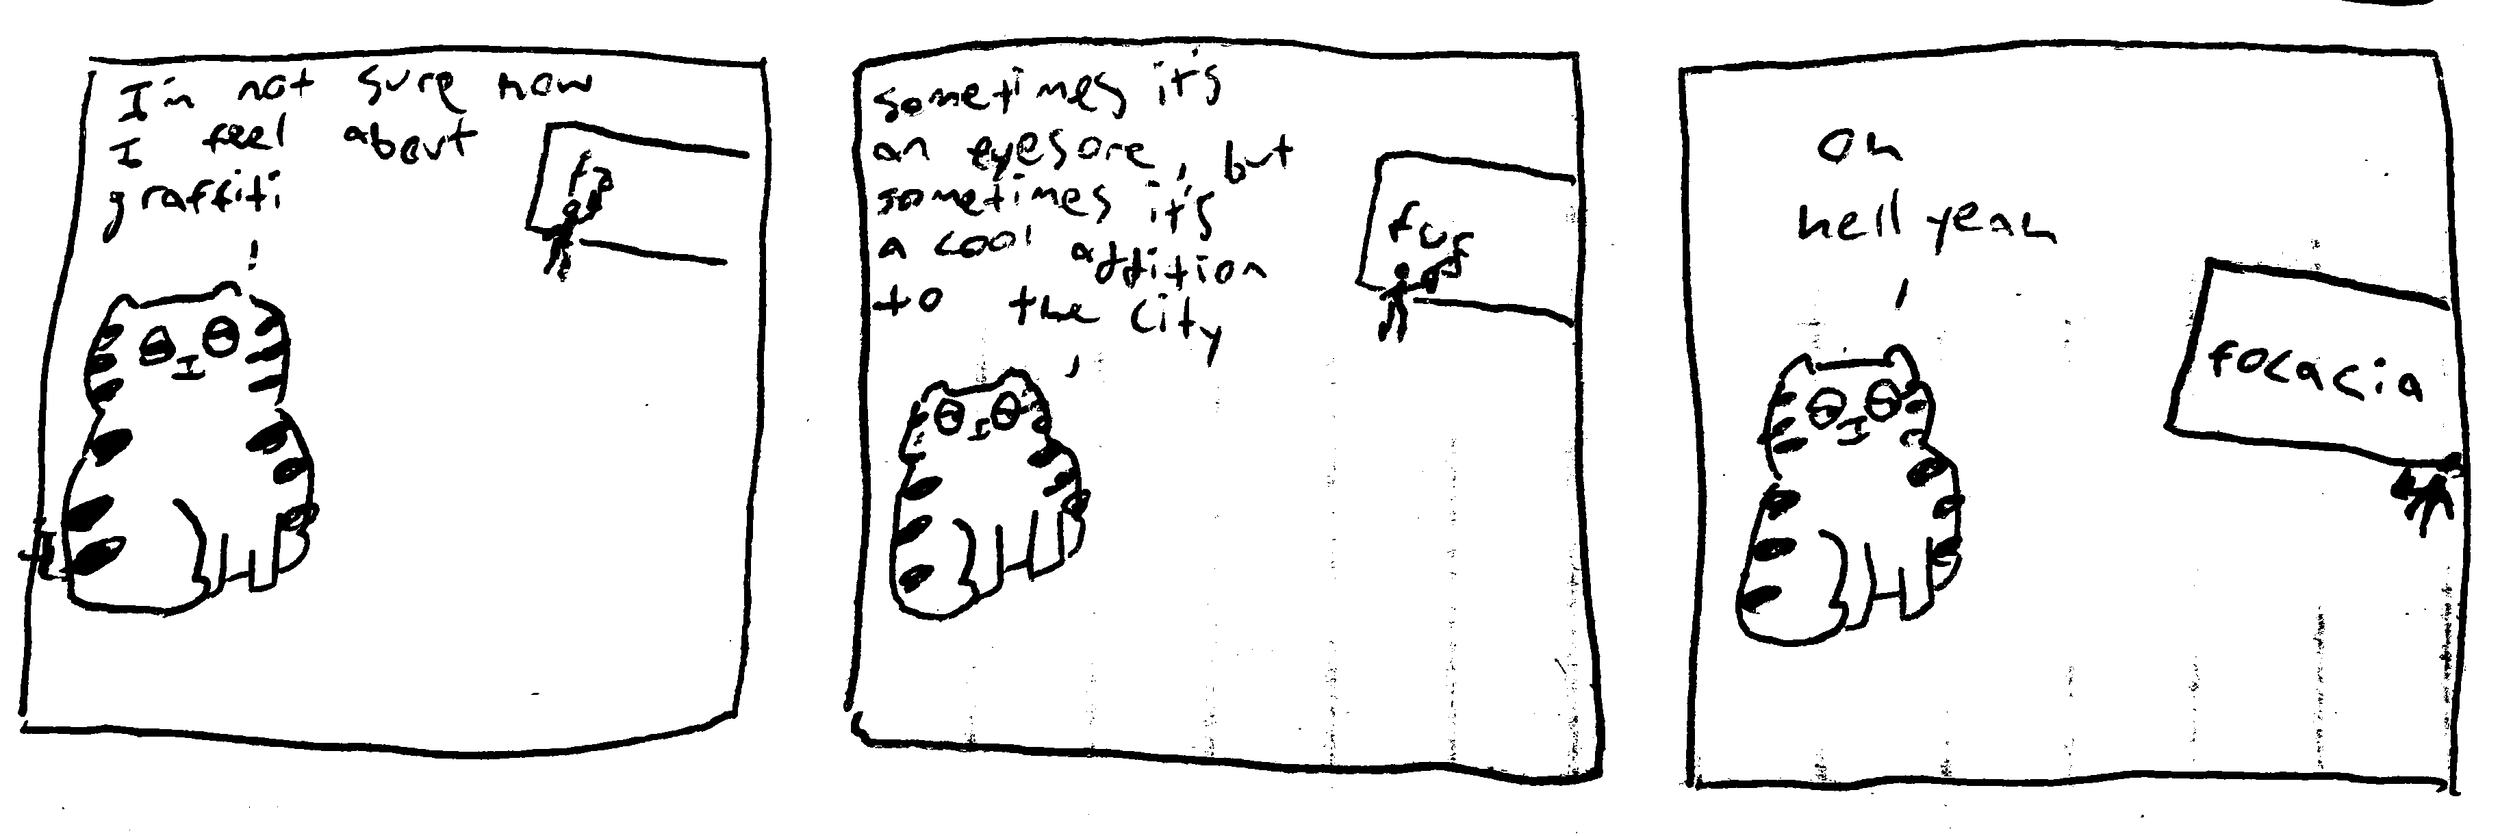 I'm not sure how
I feel about
graffiti
fo
sometimes it's
an eyesore, but
sometimes it's
a cool addition
to the city
oh
hell yeah
focacia